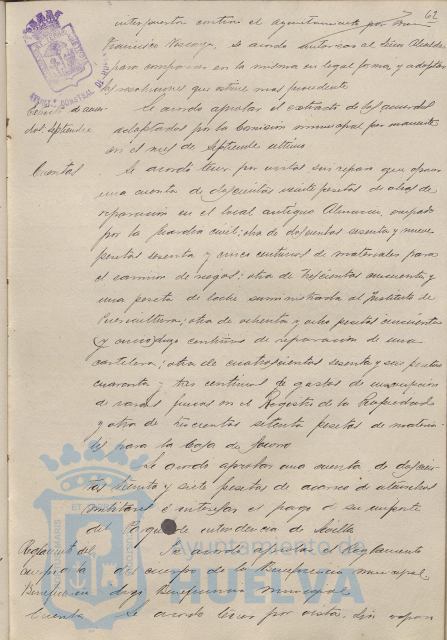 62
interpuesta contra el ayuntamiento por Don
Francisco Vizcaya, se acordó autorizar al Señor Alcalde
para comparecer en la misma en legal forma y adoptar
las resoluciones que estime mas procedente
Se acordó aprobar el extracto de los acuerdos
dos. Septiembre
adoptados por la Comisión municipal permanente
en el mes de Septiembre último
Cuentas
Se acordó tener por vistas sin reparo que oponer
una cuenta de doscientas veinte pesetas de obras de
reparación en el local antiguo Almacén, ocupado
por la guardia civil; otra de doscientas sesenta y nueve
pesetas sesenta y cinco centimos de materiales para
el camion de riegos; otra de trescientas cincuenta y
una peseta de leche suministrada al Instituto de
Puericultura; otra de ochenta y ocho pesetas cincuenta
y cinco digo centimos de reparación de una
cartelera; otra de cuatrocientas sesenta y seis pesetas
cuarenta y tres centimos de gastos de inscripción
de varias fincas en el Registro de la Propiedad
y otra de trescientas setenta pesetas de materia-
les para la Casa de Socorro
Se acordó aprobar una cuenta de doscien-
tas treinta y siete pesetas de acarreo de utensilios
militares é interesar el pago de su importe
del Parque de intendencia de Sevilla
Reglamento del
Se acordó aprobar el Reglamento
del cuerpo de la Beneficencia municipal
Beneficencia digo Beneficencia municipal
Cuenta
Se acordó tener por vista, sin reparo
Ayuntamiento de
HUELVA